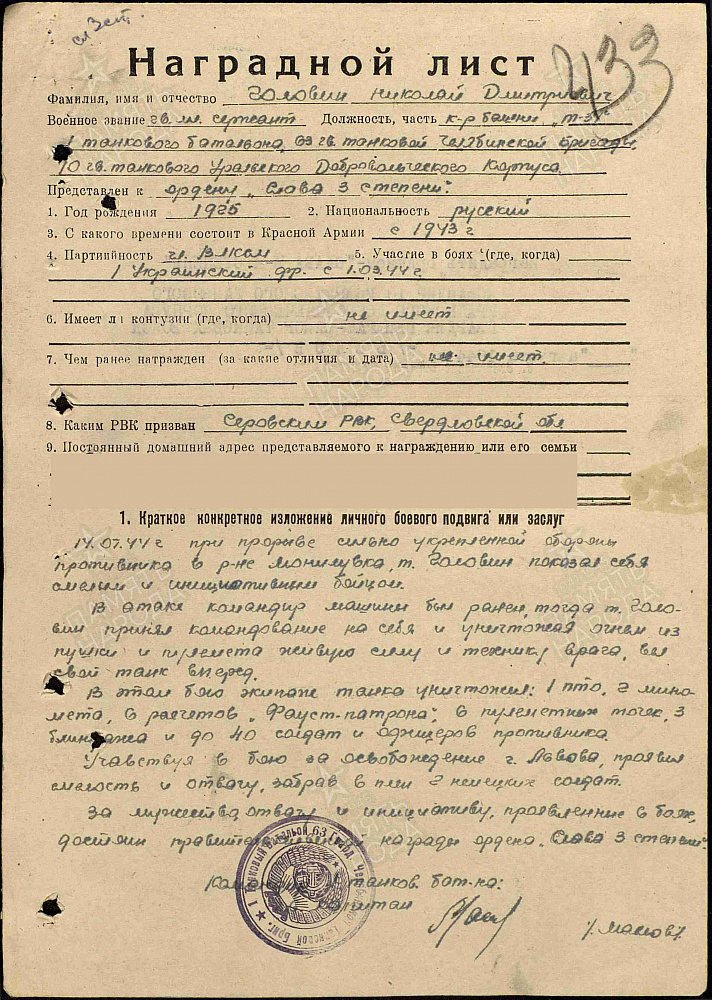 сл 3 ст.
433
Наградной лист
Фамилия, имя и отчество Головин Николай Дмитриевич
Военное звание гв. мл. сержант Должность, часть к-р башни „Т-34"
1 танкового батальона, 63 гв. танковой Челябинской бригады,
10 гв. танкового Уральского Добровольческого Корпуса
Представлен к ордену „Слава 3 степени".
1. Год рождения 1925 2. Национальность русский
3. С какого времени состоит в Красной Армии с 1943 г
4. Партийность чл. ВЛКСМ 5. Участие в боях (где, когда)
1 Украинский фр. с 1.03.44 г.
6. Имеет ли контузии (где, когда) не имеет
7. Чем ранее натражден (за какие отличия и дата) не имеет.
8. Каким РВК призван Серовским РВК, Свердловской обл
9. Постоянный домашний адрес представляемого к награждению или его семьи
1. Краткое конкретное изложение личного боевого подвига или заслуг
14.07.44 г при прорыве сильно укрепленной обороны
противника в р-не Монилувка, т. Головин показал себя
смелым и инициативным бойцом.
В атаке командир машины был ранен, тогда т. Голо-
вин принял командование на себя и уничтожая огнем из
пушки и пулемета живую силу и технику врага, вел
свой танк вперед.
В этом бою экипаж танка уничтожил: 1 ПТО, 2 мино-
мета, 6 расчетов „Фауст-патрона", 6 пулеметных точек, 3
блиндажа и до 40 солдат и офицеров противника.
Учавствуя в бою за освобождение г. Львова, проявил
смелость и отвагу, забрав в плен 2 немецких солдат.
За мужество, отвагу и инициативу, проявленные в боях,
достоин правительственной награды ордена „Слава 3 степени".
Командир 1 танков. бат-на:
капитан
/Маслов/.
★ 1 Танковый Батальон 63 Гвард. Челябинской Танковой Бриг.
ПАМЯТЬ НАРОДА